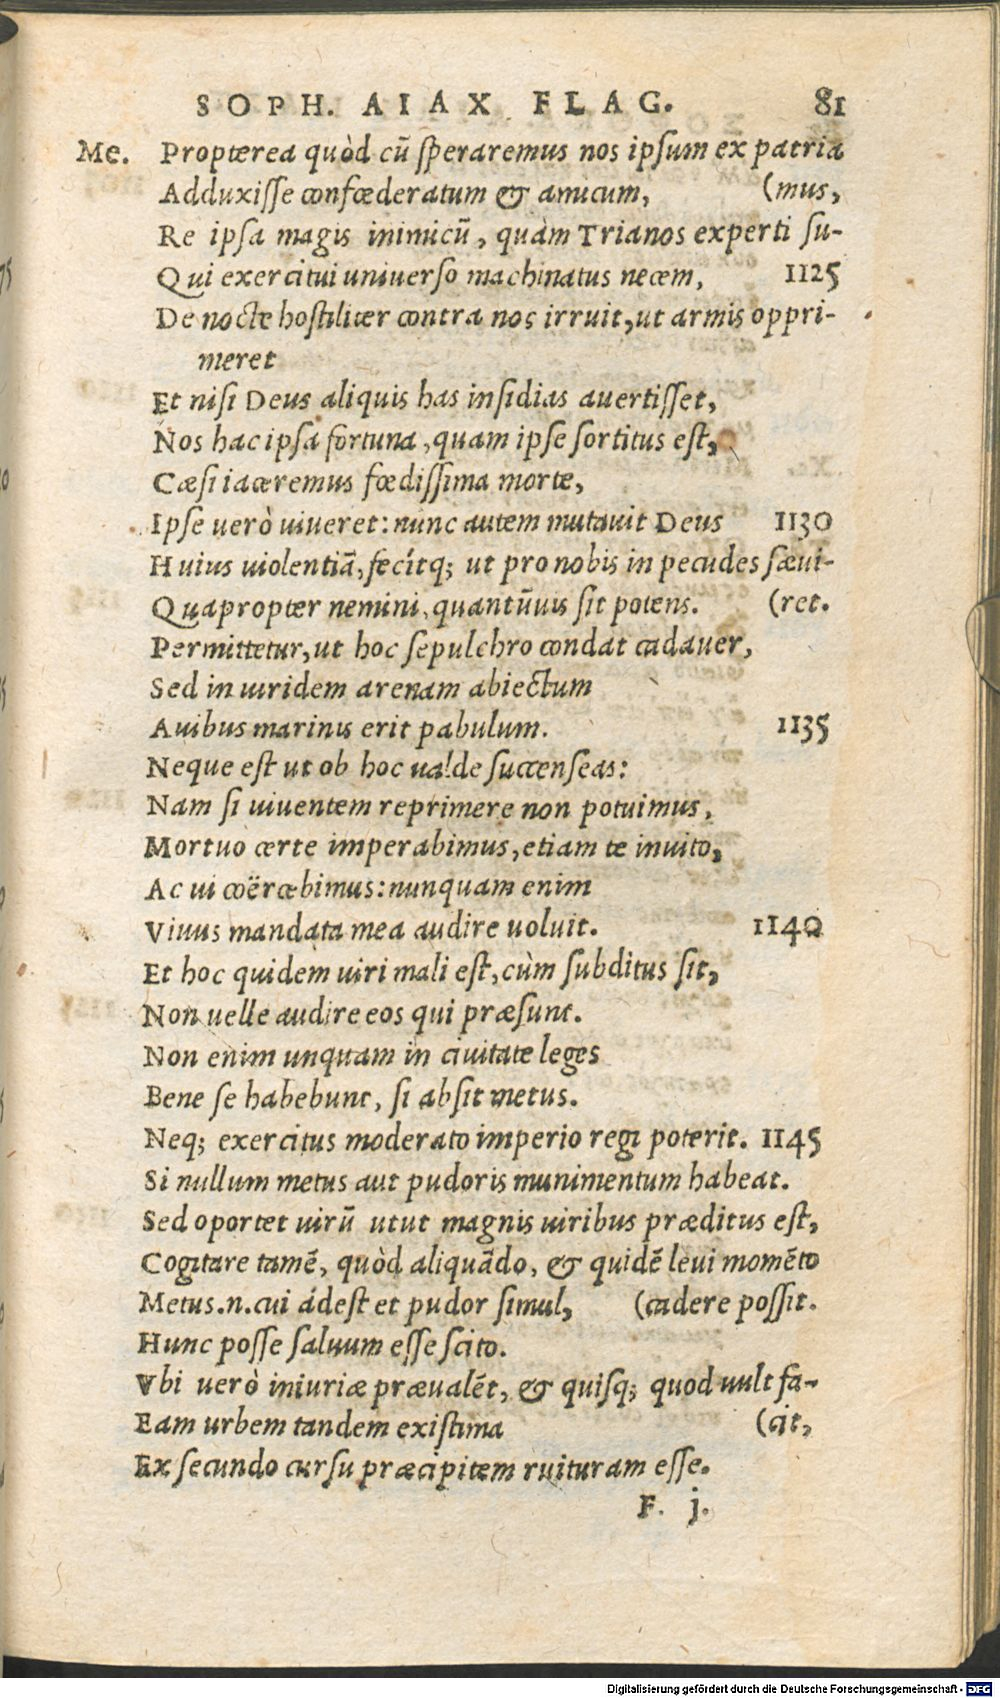 SOPH. AIAX FLAG. 81
Me. Propterea quòd cũ ſperaremus nos ipſum ex patria
Adduxiſſe confœderatum & amicum, (mus,
Re ipſa magis inimicũ, quàm Trianos experti ſu-
Qui exercitui uniuerſo machinatus necem, 1125
De nocte hoſtiliter contra nos irruit, ut armis oppri-
meret
Et niſi Deus aliquis has inſidias auertiſſet,
Nos hac ipſa fortuna, quam ipſe ſortitus eſt,
Cæſi iaceremus fœdiſſima morte,
Ipſe uerò uiueret: nunc autem mutauit Deus 1130
Huius uiolentiã, fecitq; ut pro nobis in pecudes ſæui-
Quapropter nemini, quantũuis ſit potens. (ret.
Permittetur, ut hoc ſepulchro condat cadauer,
Sed in uiridem arenam abiectum
Auibus marinis erit pabulum. 1135
Neque eſt ut ob hoc ualde ſuccenſeas:
Nam ſi uiuentem reprimere non potuimus,
Mortuo certe imperabimus, etiam te inuito,
Ac ui coërcebimus: nunquam enim
Viuus mandata mea audire uoluit. 1140
Et hoc quidem uiri mali eſt, cùm ſubditus ſit,
Non uelle audire eos qui præſunt.
Non enim unquam in ciuitate leges
Bene ſe habebunt, ſi abſit metus.
Neq; exercitus moderato imperio regi poterit. 1145
Si nullum metus aut pudoris munimentum habeat.
Sed oportet uirũ utut magnis uiribus præditus eſt,
Cogitare tamẽ, quòd aliquãdo, & quidẽ leui momẽto
Metus.n.cui adeſt et pudor ſimul, (cadere poſſit.
Hunc poſſe ſaluum eſſe ſcito.
Vbi uerò iniuriæ præualẽt, & quiſq; quod uult fa-
Eam urbem tandem exiſtima (cit,
Ex ſecundo curſu præcipitem ruituram eſſe.
F. j.
Digitalisierung gefördert durch die Deutsche Forschungsgemeinschaft - DFG